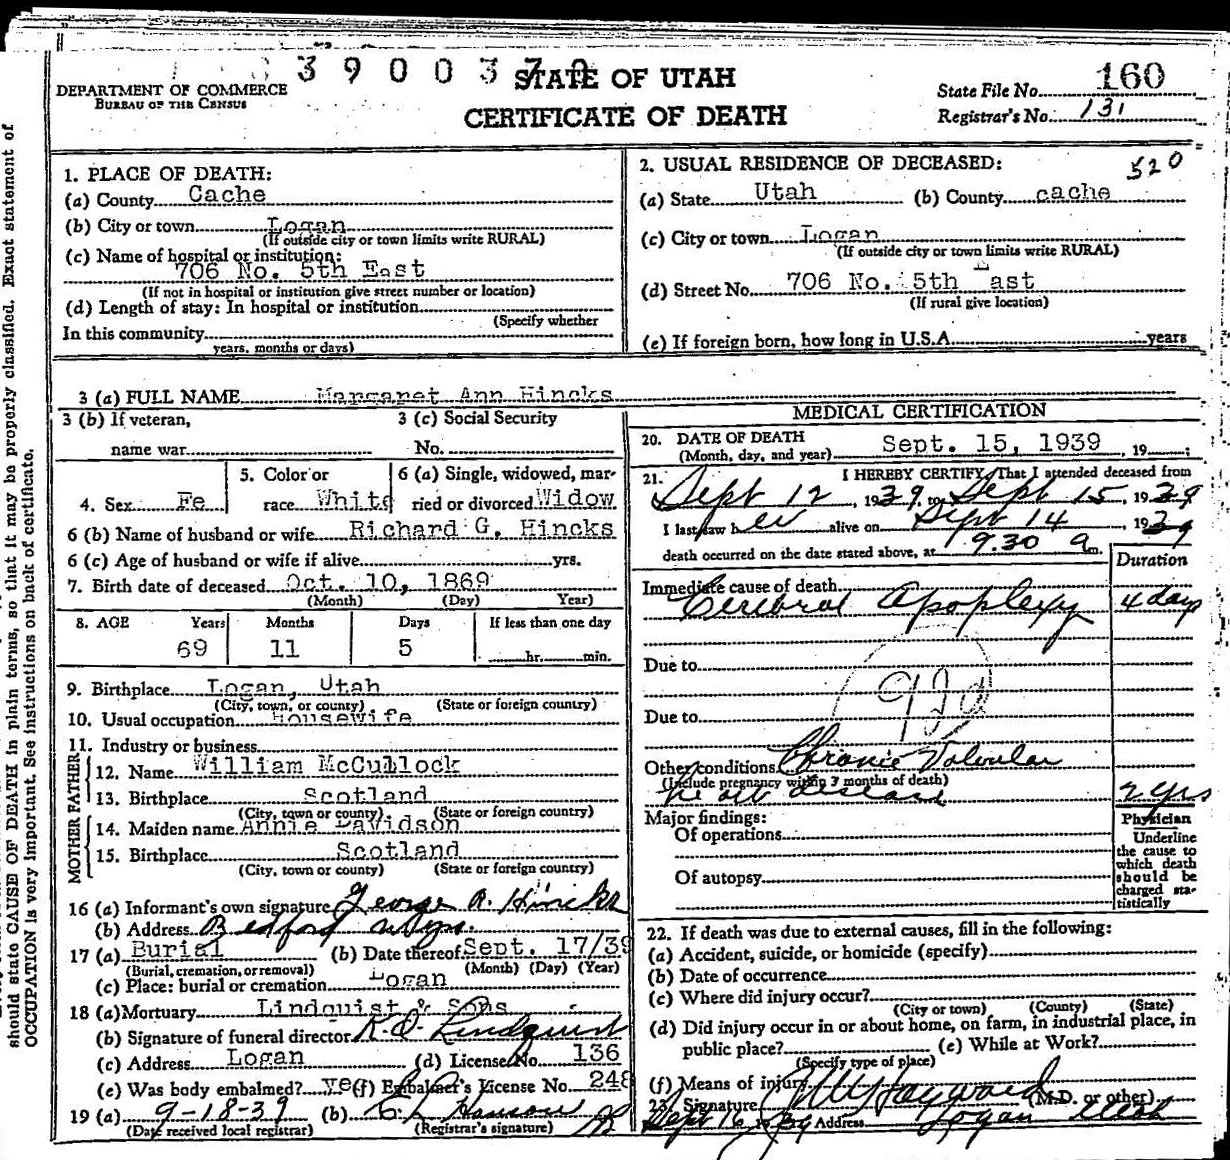 390037
STATE OF UTAH
CERTIFICATE OF DEATH
DEPARTMENT OF COMMERCE
BUREAU OF THE CENSUS
State File No. 160
Registrar's No. 131
should state CAUSE OF DEATH in plain terms, so that it may be properly classified. Exact statement of
OCCUPATION is very important. See instructions on back of certificate.
1. PLACE OF DEATH:
(a) County Cache
(b) City or town Logan
(If outside city or town limits write RURAL)
(c) Name of hospital or institution:
706 No. 5th East
(If not in hospital or institution give street number or location)
(d) Length of stay: In hospital or institution
(Specify whether
In this community
years, months or days)
2. USUAL RESIDENCE OF DECEASED: 520
(a) State Utah (b) County cache
(c) City or town Logan
(If outside city or town limits write RURAL)
(d) Street No. 706 No. 5th East
(If rural give location)
(e) If foreign born, how long in U.S.A. years
3 (a) FULL NAME Margaret Ann Hincks
3 (b) If veteran,
name war
3 (c) Social Security
No.
4. Sex Fe
5. Color or
race White
6 (a) Single, widowed, mar-
ried or divorced Widow
6 (b) Name of husband or wife Richard G. Hincks
6 (c) Age of husband or wife if alive yrs.
7. Birth date of deceased Oct. 10, 1869
(Month) (Day) Year)
8. AGE Years Months Days If less than one day
69 11 5 hr. min.
9. Birthplace Logan, Utah
(City, town, or county) (State or foreign country)
10. Usual occupation Housewife
11. Industry or business
FATHER
12. Name William McCullock
13. Birthplace Scotland
(City, town or county) (State or foreign country)
MOTHER
14. Maiden name Annie Davidson
15. Birthplace Scotland
(City, town or county) (State or foreign country)
16 (a) Informant's own signature George R. Hincks
(b) Address Bedford Wyo.
17 (a) Burial (b) Date thereof Sept. 17/39
(Burial, cremation, or removal) (Month) (Day) (Year)
(c) Place: burial or cremation Logan
18 (a) Mortuary Lindquist & Sons
(b) Signature of funeral director K. O. Lindquist
(c) Address Logan (d) License No. 136
(e) Was body embalmed? yes (f) Embalmer's License No. 248
19 (a) 9-18-39 (b)
(Date received local registrar) (Registrar's signature)
MEDICAL CERTIFICATION
20. DATE OF DEATH
(Month, day, and year) Sept. 15, 1939, 19
21. I HEREBY CERTIFY, That I attended deceased from
Sept 12, 1939, to Sept 15, 1939
I last saw her alive on Sept 14, 1939
death occurred on the date stated above, at 9.30 a m.
Duration
Immediate cause of death
Cerebral Apoplexy 4 days
Due to
Due to
Other conditions Chronic Valvular
(Include pregnancy within 3 months of death)
heart disease 2 yrs
Major findings:
Of operations
Of autopsy
Physician
Underline
the cause to
which death
should be
charged sta-
tistically
22. If death was due to external causes, fill in the following:
(a) Accident, suicide, or homicide (specify)
(b) Date of occurrence
(c) Where did injury occur?
(City or town) (County) (State)
(d) Did injury occur in or about home, on farm, in industrial place, in
public place? (e) While at Work?
(Specify type of place)
(f) Means of injury
23. Signature Hayward (M.D. or other)
Sept 16 1939 Address Logan Utah